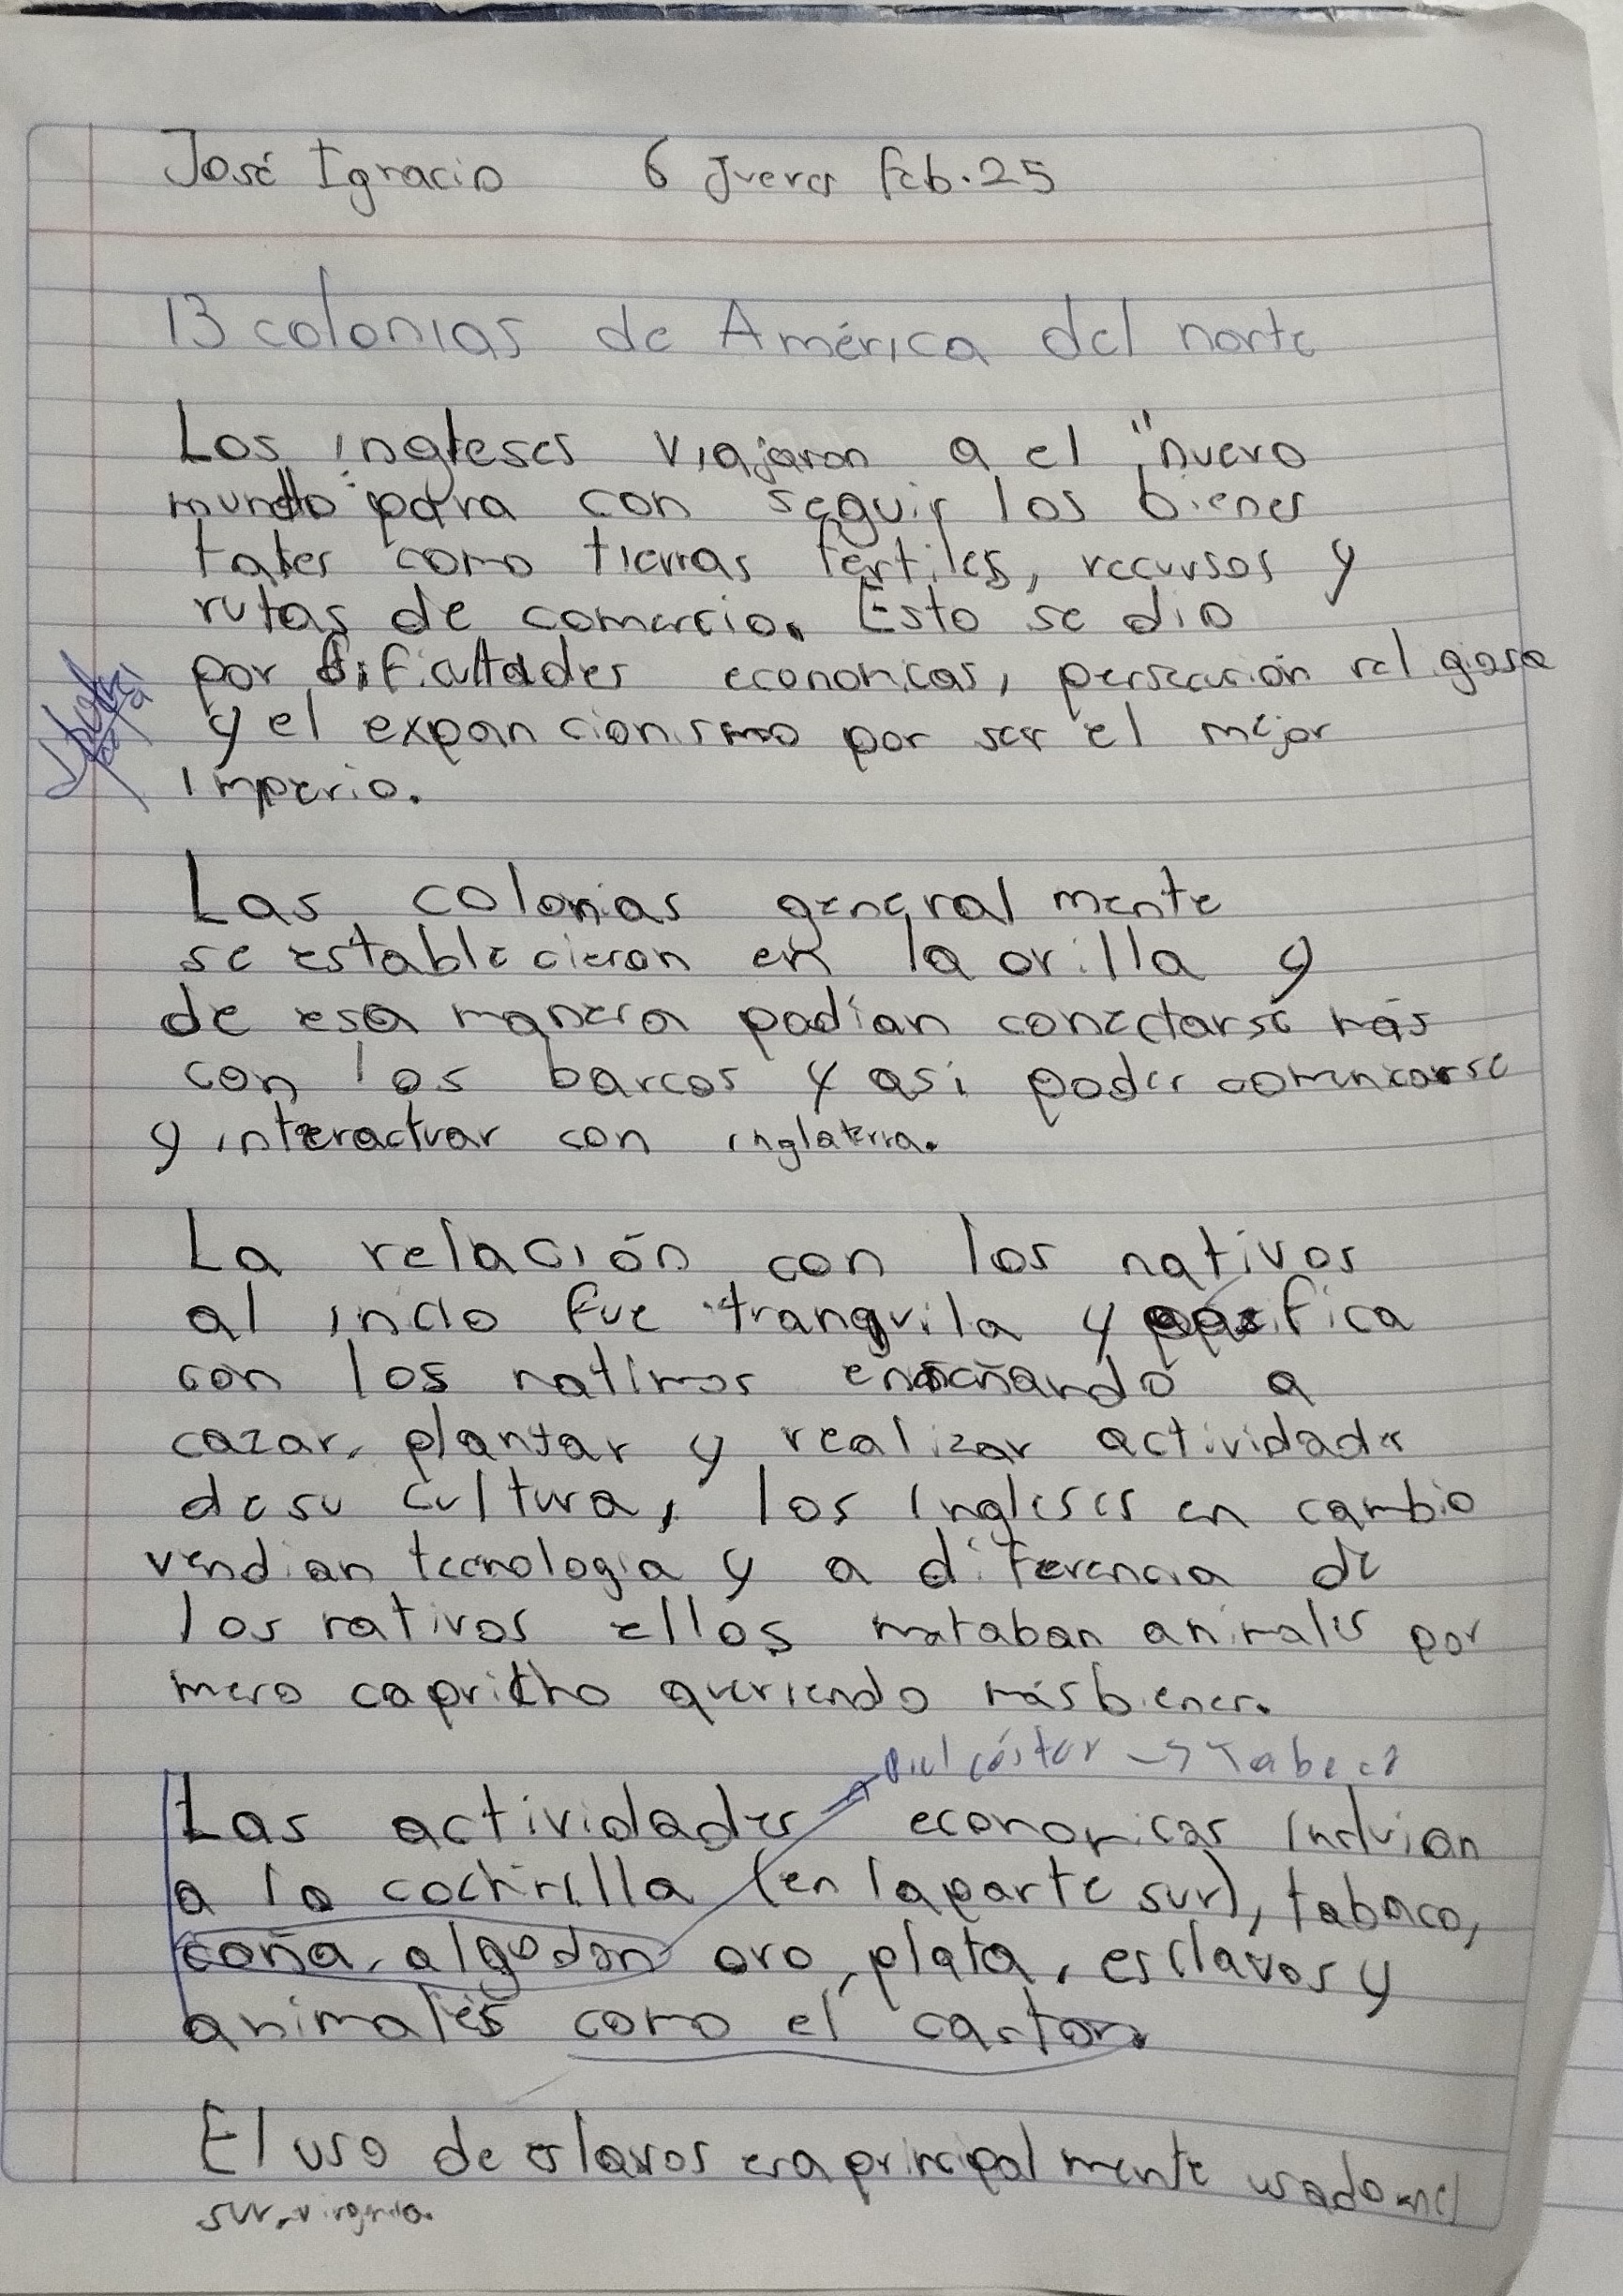 José Ignacio 6 Jueves feb. 25
13 colonias de América del norte
Los ingleses viajaron a el "nuevo
mundo" para con seguir los bienes
tales como tierras fértiles, recursos y
rutas de comercio. Esto se dio
por dificultades economicas, persecución religiosa
y el expancionismo por ser el mejor
imperio.
Las colonias general mente
se establecieron en la orilla y
de esa manera podían conectarse más
con los barcos y asi poder comunicarse
y interactuar con inglaterra.
La relación con los nativos
al incio fue tranquila y pacifica
con los nativos enseñando a
cazar, plantar y realizar actividades
de su cultura, los ingleses en cambio
vendian tecnologia y a diferencia de
los nativos ellos mataban animales por
mero capricho queriendo más bienes.
Piel cástor → Tabaco
Las actividades economicas incluian
a la cochinilla (en la parte sur), tabaco,
caña, algodón oro, plata, esclavos y
animales como el castor.
El uso de eslavos era principal mente usado en el
sur, virginia.